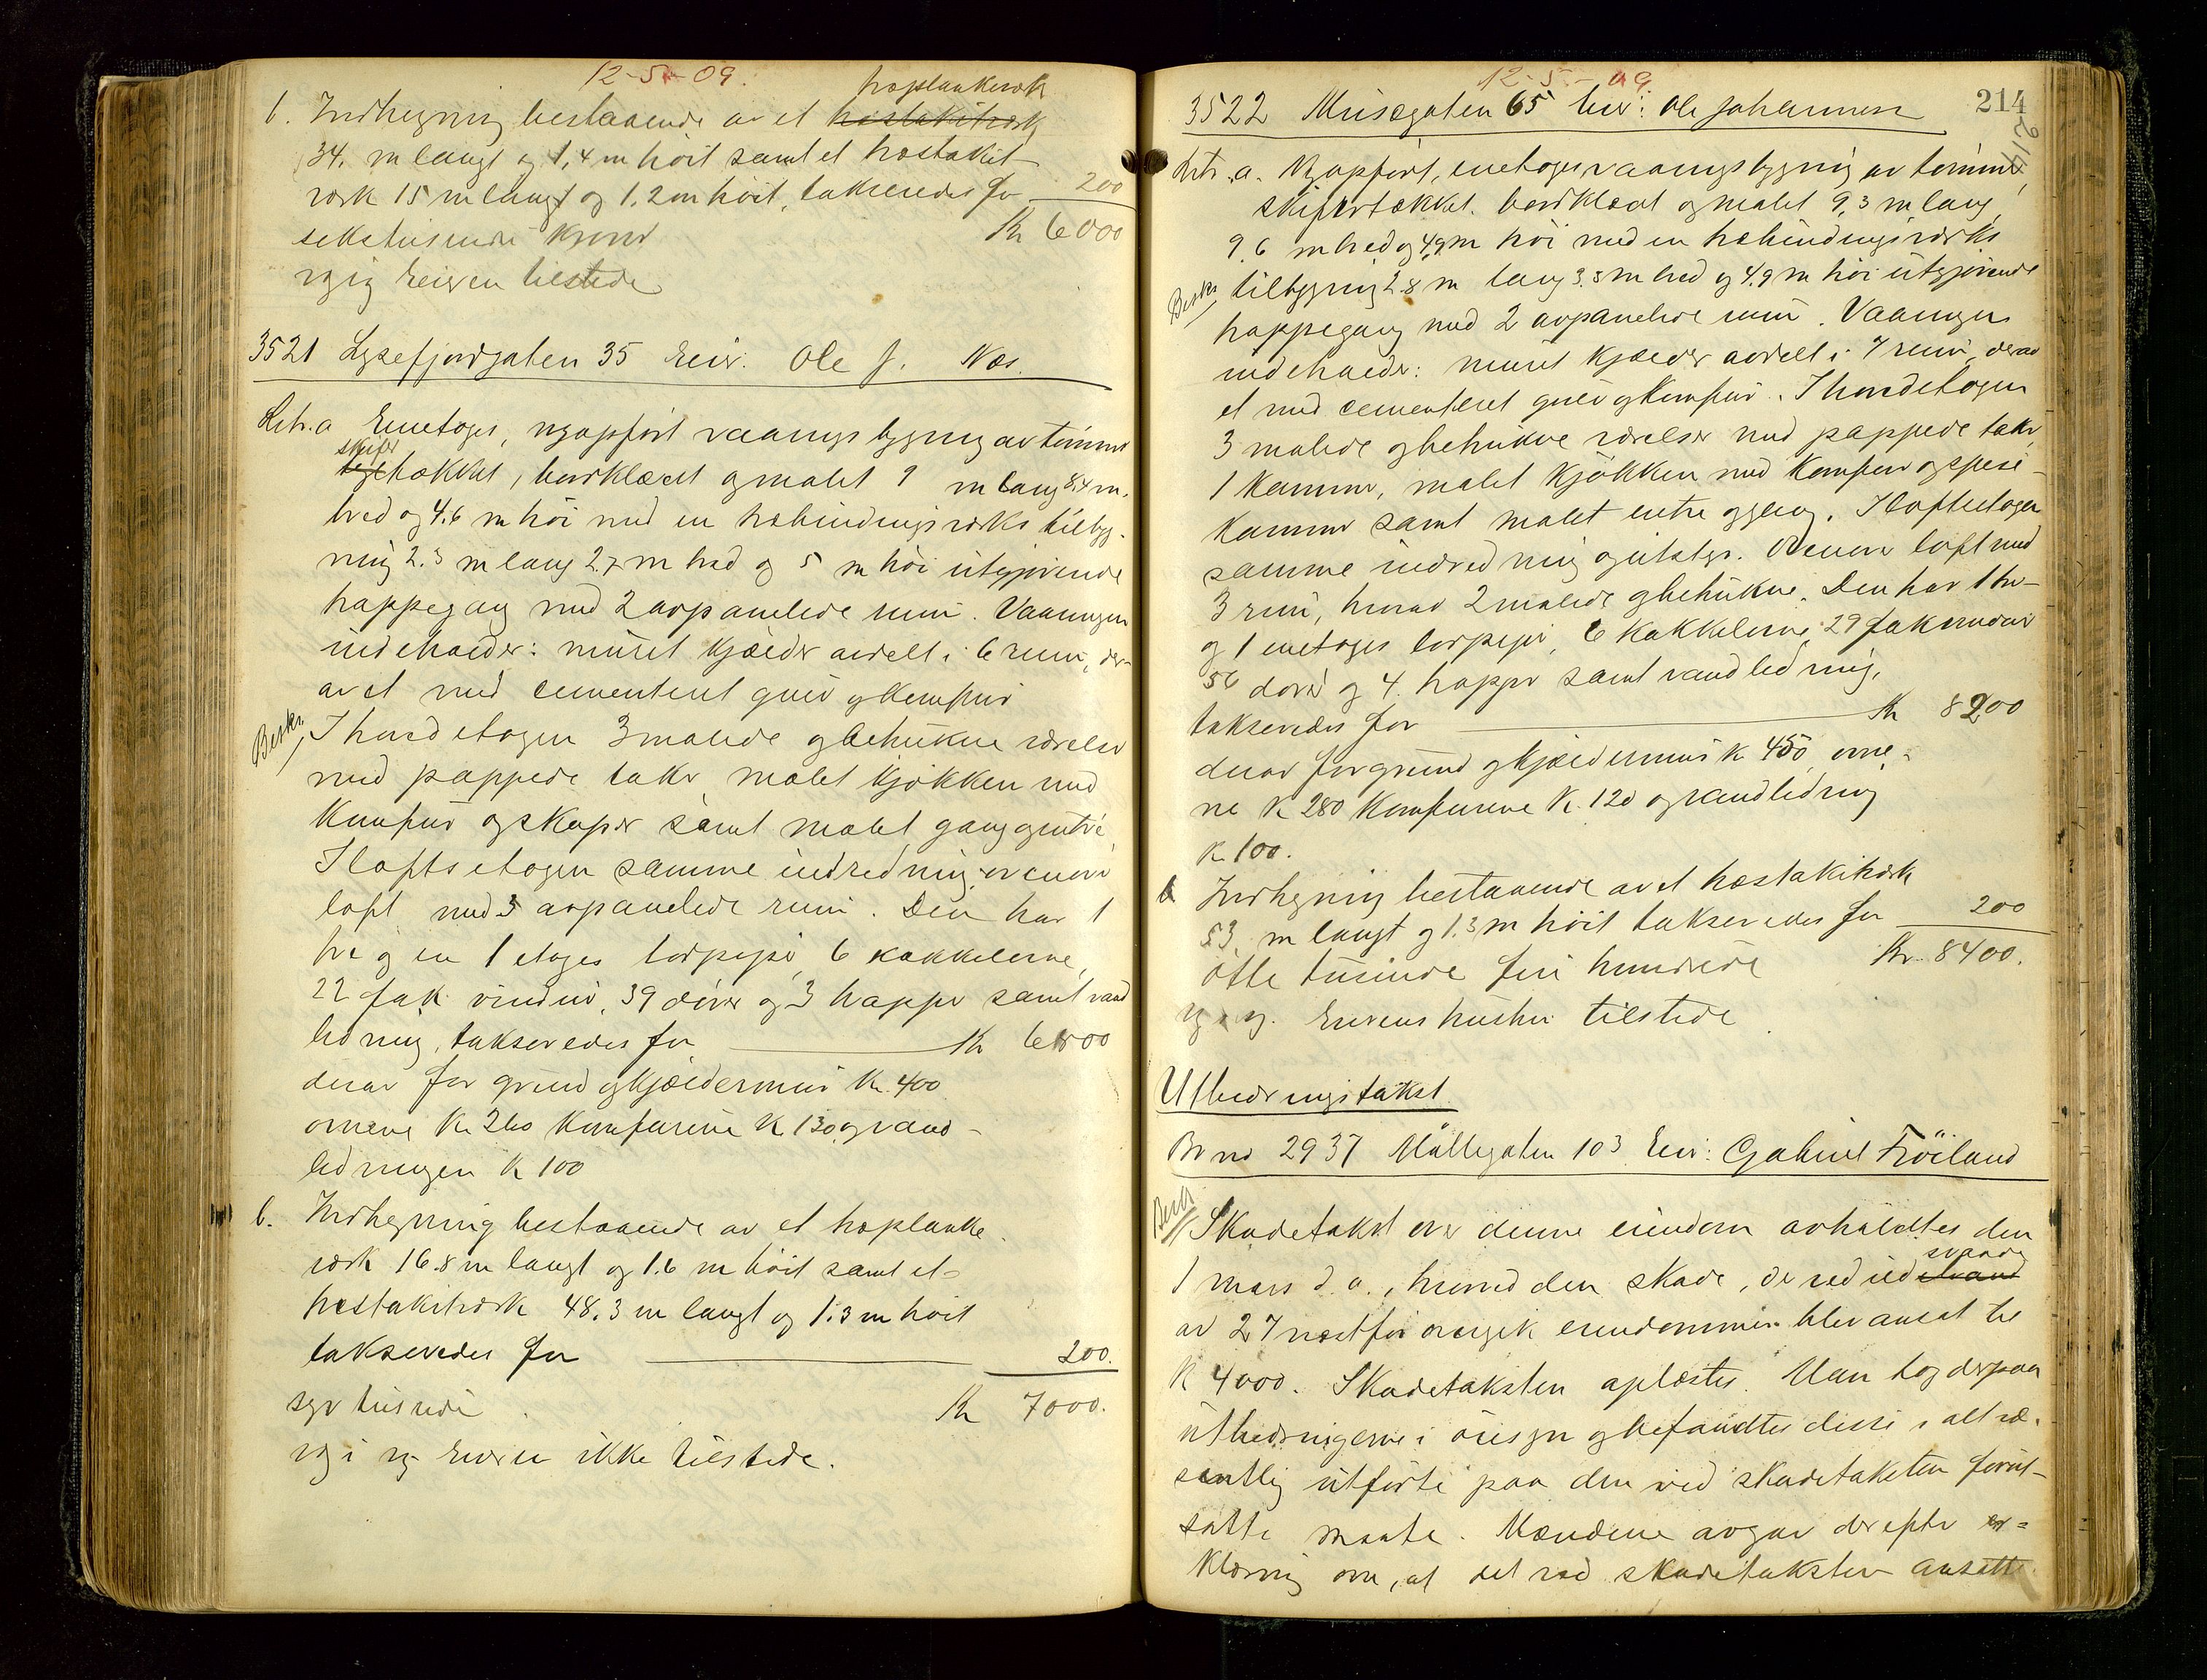 12-5-09.
træplankeværk
b. Indhegning bestaaende av et træstakitværk
34. m langt og 1,4 m höit samt et træstakit-
værk 15 m langt og 1.2 m höit, takseredes for 200
seksetusinde kroner Kr 6000
Eieren tilstede
3521 Lysefjordgaten 35 Eier: Ole J. Næs.
Litr. a Enetages, nyopfört vaaningsbygning av tömmer
skifer
tegltækket, bordklædt og malet 9 m lang 8.4 m.
bred og 4.6 m höi med en træbindingsværks tilbyg-
ning 2.3 m lang 2.7 m bred og 5 m höi utgjörende
trappegang med 2 avpanelede rum. Vaaningen
indeholder: muret kjælder avdelt i 6 rum, der-
av et med cementeret gulv og komfur
Beskr.
I hovedetagen 3 malede og betrukne værelser
med pappede taker, malet kjökken med
komfur og skaper samt malet gang og entré,
I loftsetagen samme indredning, ovenover
loft med 3 avpanelede rum. Den har 1
to og en 1 etages torpipe, 6 kakkelovne,
22 fak vinduer, 39 dörer og 3 trapper samt vand
ledning, takseredes for Kr 6800
derav for grund og kjældermur Kr. 400
ovnene Kr. 260 komfurene Kr 130 og vand-
ledningen Kr 100
b. Indhegning bestaaende av et træplanke
værk 16.8 m langt og 1.6 m höit samt et
træstakitværk 48.3 m langt og 1.3 m höit
takseredes for 200.
syv tusinde Kr 7000.
Eieren ikke tilstede.
12-5-09
214
214
3522 Musegaten 65 Eier: Ole Johannesen
Litr. a. Nyopfört, enetages vaaningsbygning av tömmer,
skifertækket, bordklædt og malet 9,3 m lang,
9.6 m bred og 4,9 m höi med en træbindingsværks
Beskr.
tilbygning 2.8 m lang 3.3 m bred og 4.9 m höi utgjörende
trappegang med 2 avpanelede rum. Vaaningen
indeholder: muret kjælder avdelt i 7 rum, derav
et med cementeret gulv og komfur. I hovedetagen
3 malede og betrukne værelser med pappede taker,
1 kammer, malet kjökken med komfur og spise-
kammer samt malet entre og gang. I loftsetagen
samme indredning og utstyr. Ovenover loft med
3 rum, hvorav 2 malede og betrukne. Den har 1 to-
og 1 enetages torpipe, 6 kakkelovne, 29 fak vinduer
56 dörer og 4 trapper samt vandledning,
takseredes for Kr 8200
derav for grund og kjældermur k 450, ovne-
ne k 280 komfurene K. 120 og vandledning
K. 100.
b Indhegning bestaaende av et træstakitværk
53, m langt og 1.3 m höit takseredes for 200
otte tusinde fire hundrede Kr. 8400.
Eierens hustru tilstede
Utbedringstakst.
Br no 2937 Möllegaten 103 Eier: Gabriel Fröiland
Beskr
Skadetakst over denne eiendom avholdtes den
1 mars d.a., hvorved den skade, der ved ildsvaade
av 27 næstfor overgik eiendommen blev ansat til
K 4000. Skadetaksten oplæstes. Man tog derpaa
utbedringerne i öiesyn og befandtes disse i alt væ-
sentlig utförte paa den ved skadetaksten forut-
satte maate. Mændene avgav derefter er=
klæring om, at det ved skadetaksten ansatte